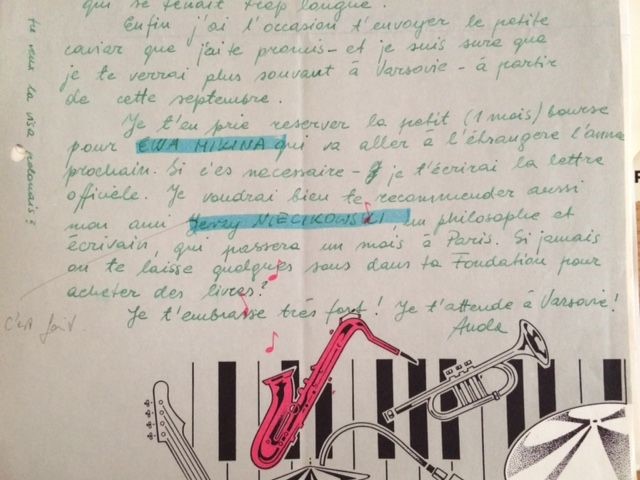 qui se tenait trop longue.
Enfin j'ai l'occasion t'envoyer le petite
caviar que j'aite promis - et je suis sure que
je te verrai plus souvant à Varsovie - à partir
de cette septembre.
Je t'en prie reserver la petit (1 mois) bourse
pour EWA MIKINA qui va aller à l'étrangere l'anné
prochain. Si c'es necessaire - je t'écrirai la lettre
officèle. Je voudrai bien te recommender aussi
mon ami Jerzy NIECIKOWSKI, un philosophe et
écrivain, qui passera un mois à Paris. Si jamais
on te laisse quelques sous dans ta Fondation pour
acheter des livres?
Je t'embrasse très fort! Je t'attende à Varsovie!
Anda
c'est fait
la visa polonais?